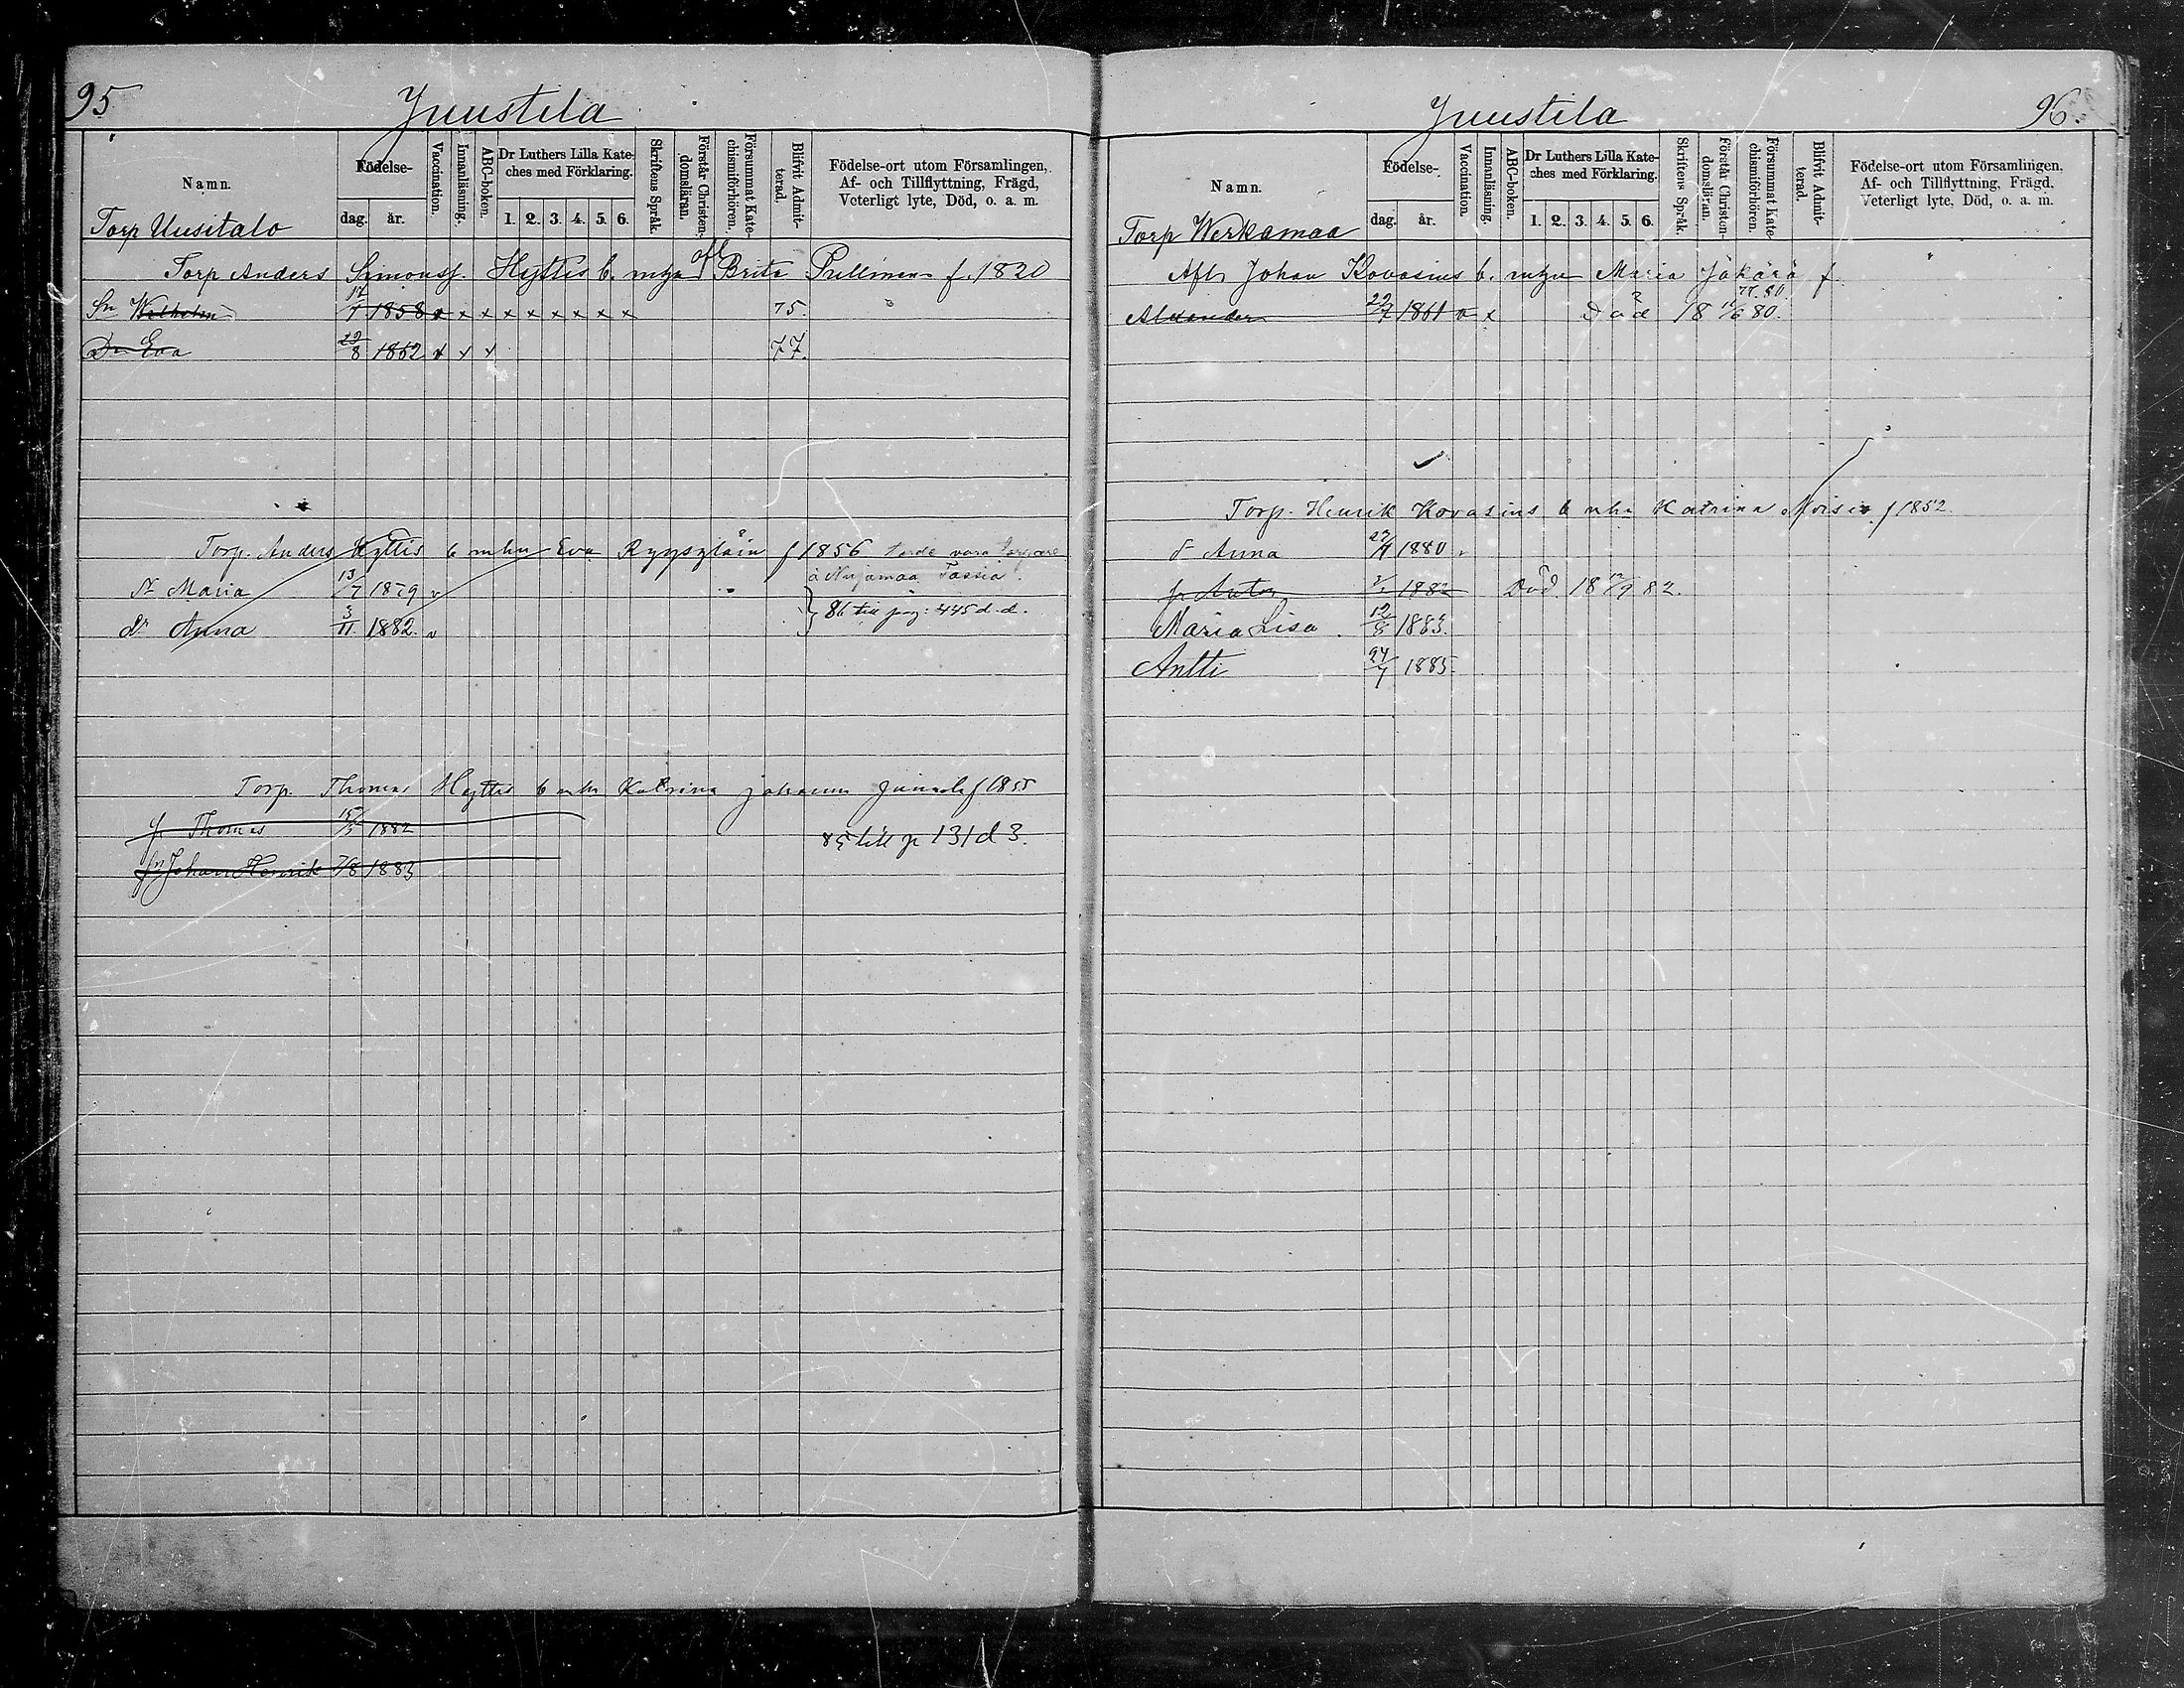 95
Juustila
Namn.
Födelse-
dag.
år.
Vaccination.
Innanläsning.
ABC-boken.
Dr Luthers Lilla Kate-
ches med Förklaring.
1. 2. 3. 4. 5. 6.
Skriftens Språk.
Förstår Christen-
domsläran.
Försummat Kate-
chismiförhören.
Blifvit Admit-
terad.
Födelse-ort utom Församlingen,
Af- och Tillflyttning, Frägd,
Veterligt lyte, Död, o. a. m.
Torp Uusitalo
Torp Anders Simonss. Hyttis b. mhu afl Brita Pullinen f. 1820
Sn Wilhelm 1858 x x x x x x x x x 75.
Dr Eva 29/8 1862 x x x 77.
Torp. Anders Hyttis b mhu Eva f 1856 torde vara torpare
å Nujamaa
Dr Maria 13/7 1879 v
86 till pag: 445 d. d.
dr Anna 3/11. 1882. v
Torp. Thomas Hyttis b mhu Katrina f 1855
sr Thomas 15/3 1882
85 till p 131 d 3.
sn Johan Henrik 7/8 1883
Juustila
96.
Namn.
Födelse-
dag.
år.
Vaccination.
Innanläsning.
ABC-boken.
Dr Luthers Lilla Kate-
ches med Förklaring.
1. 2. 3. 4. 5. 6.
Skriftens Språk.
Förstår Christen-
domsläran.
Försummat Kate-
chismiförhören.
Blifvit Admit-
terad.
Födelse-ort utom Församlingen,
Af- och Tillflyttning, Frägd,
Veterligt lyte, Död, o. a. m.
Torp Werkamaa
Afl. Johan Kovasins b. mhu Maria Jäkärä f
77. 80.
Alexander 29/7 1861 x Död 18 11/6 80.
Torp. Henrik Kovasins b mhu Katrina f 1852.
d Anna 1880 v
sr Anton 1882 Död. 18 12/9 82.
Maria Lisa. 1883.
Antti 24/7 1885.